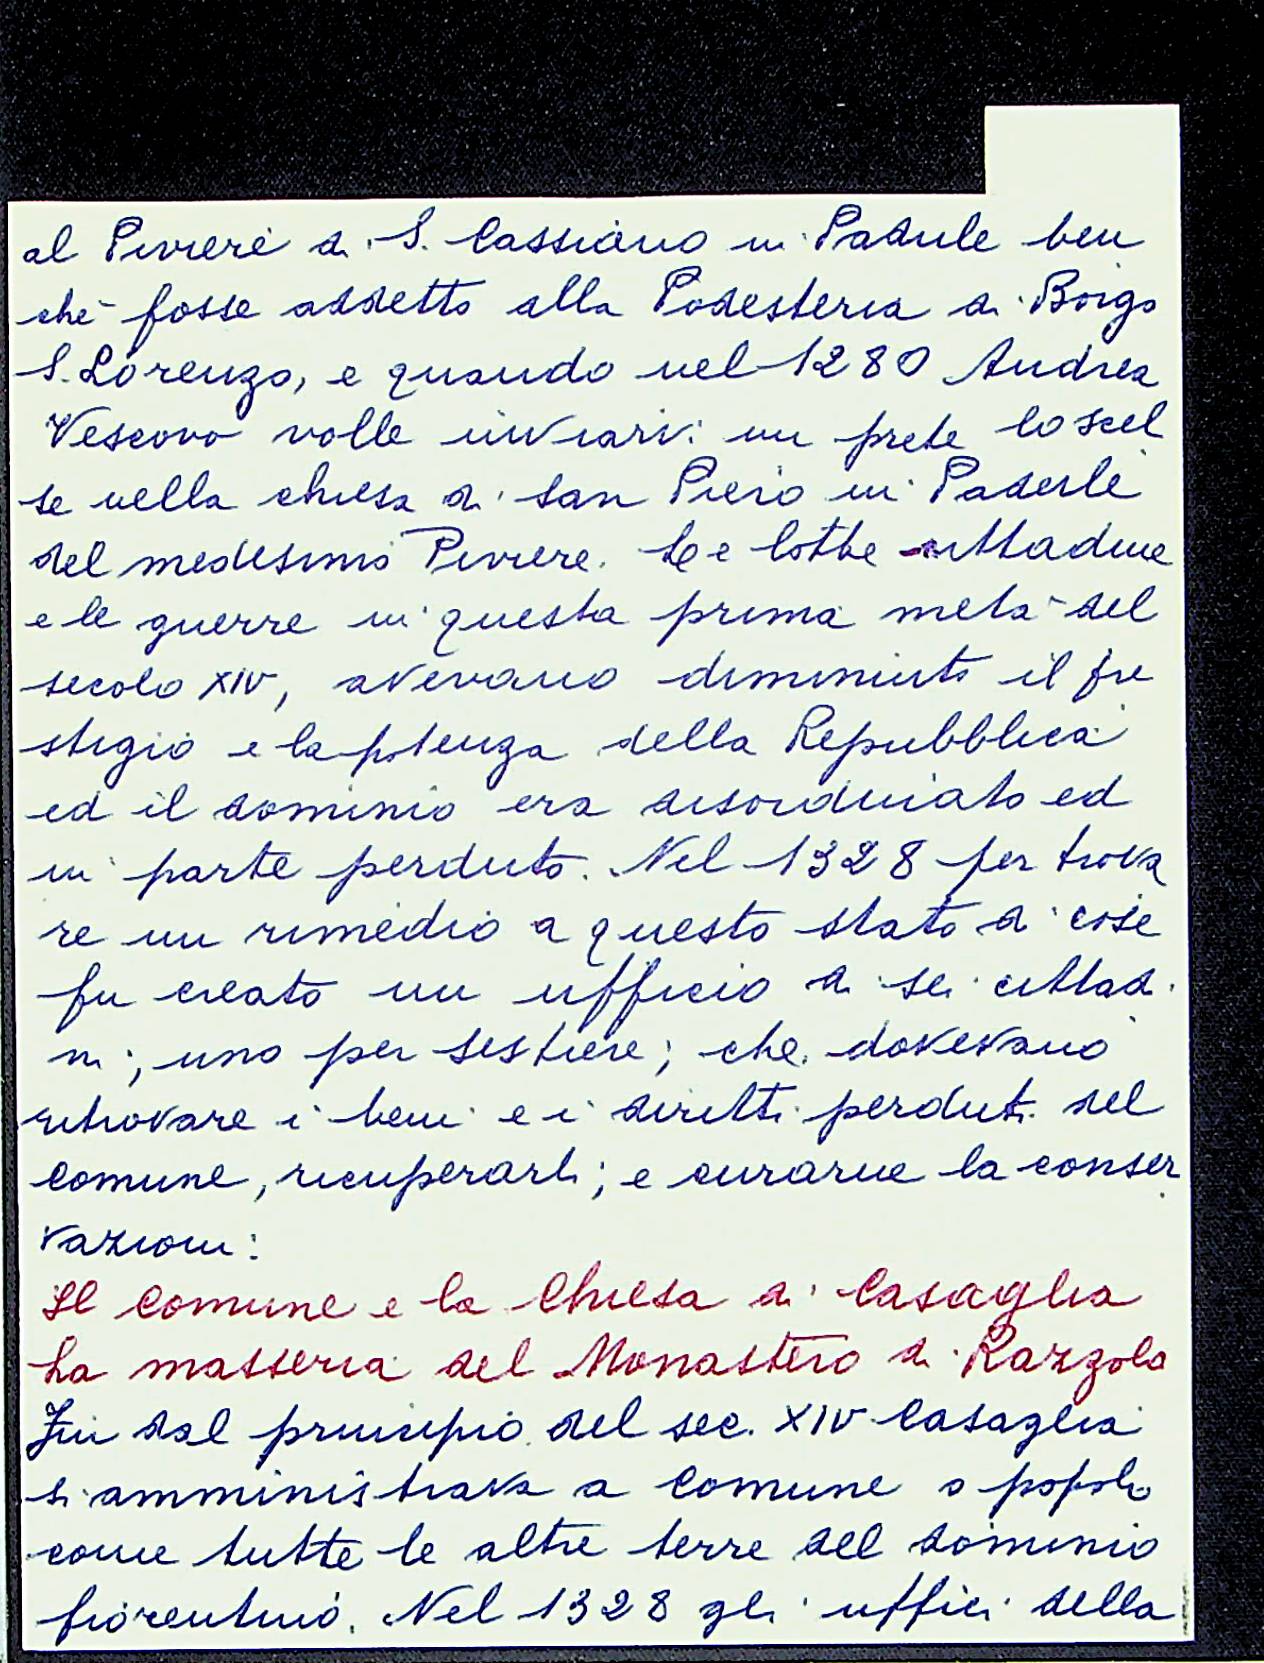 al Piviere di S. Cassiano in Padule ben
chè fosse addetto alla Podesteria di Borgo
S. Lorenzo, e quando nel 1280 Andrea
Vescovo volle inviarvi un prete lo scel
se nella chiesa di San Piero in Paderle
del medesimo Piviere. Le lotte cittadine
e le guerre in questa prima metà del
secolo XIV, avevano diminuito il pre
stigio e la potenza della Repubblica
ed il dominio era disordinato ed
in parte perduto. Nel 1328 per trova
re un rimedio a questo stato di cose
fu creato un ufficio di sei cittadi
ni; uno per sestiere; che dovevano
ritrovare i beni e i diritti perduti del
Comune, ricuperarli; e curarne la conser
vazioni:
Il Comune e la Chiesa di Casaglia
La masseria del Monastero di Razzola
Fin dal principio del sec. XIV Casaglia
si amministrava a Comune o popolo
come tutte le altre terre del dominio
fiorentino. Nel 1328 gli uffici della